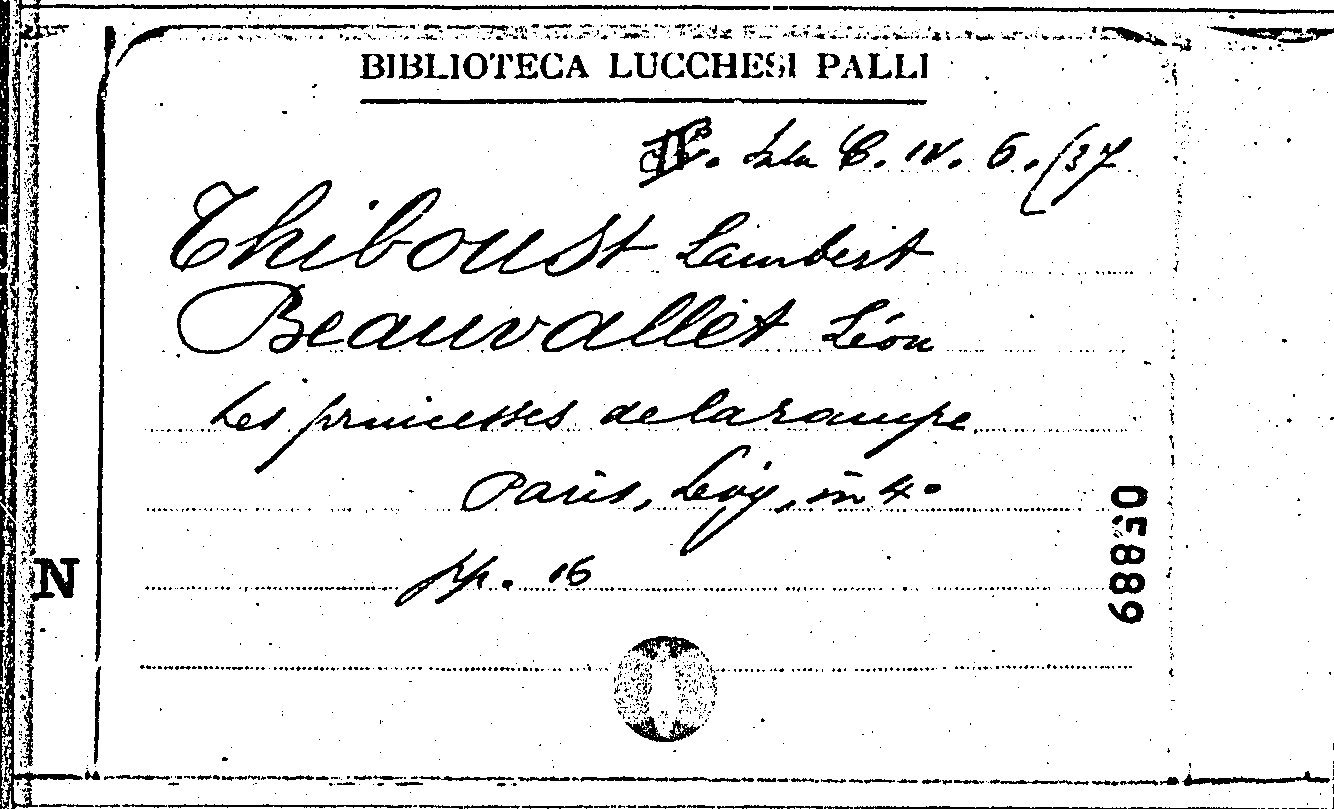 BIBLIOTECA LUCCHESI PALLI
Sala C. IV. 6. (37
Thiboust Lambert
Beauvallet Léon
Les princesses de la rampe
Paris, Levy, in 4º
pp. 16
05889
N